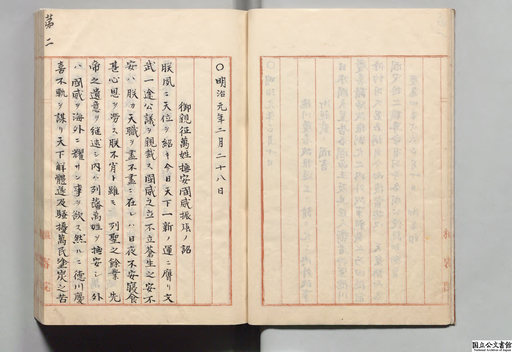 第二
〇明治元年二月二十八日
御親征萬姓撫安國威振張ノ詔
朕夙ニ天位ヲ紹キ今日天下一新ノ運ニ膺リ文
武一途公議ヲ親裁ス國威之立不立蒼生之安不
安ハ朕カ天職ヲ盡不盡ニ在レハ日夜不安寢食
甚心思ヲ勞ス朕不肖ト雖モ列聖之餘業先
帝之遺意ヲ継述シ内ハ列藩萬姓ヲ撫安シ外
ハ國威ヲ海外ニ耀サン事ヲ欲ス然ルニ德川慶
喜不軌ヲ謀リ天下解體遂及騷擾萬民塗炭之苦
国立公文書館
National Archives of Japan